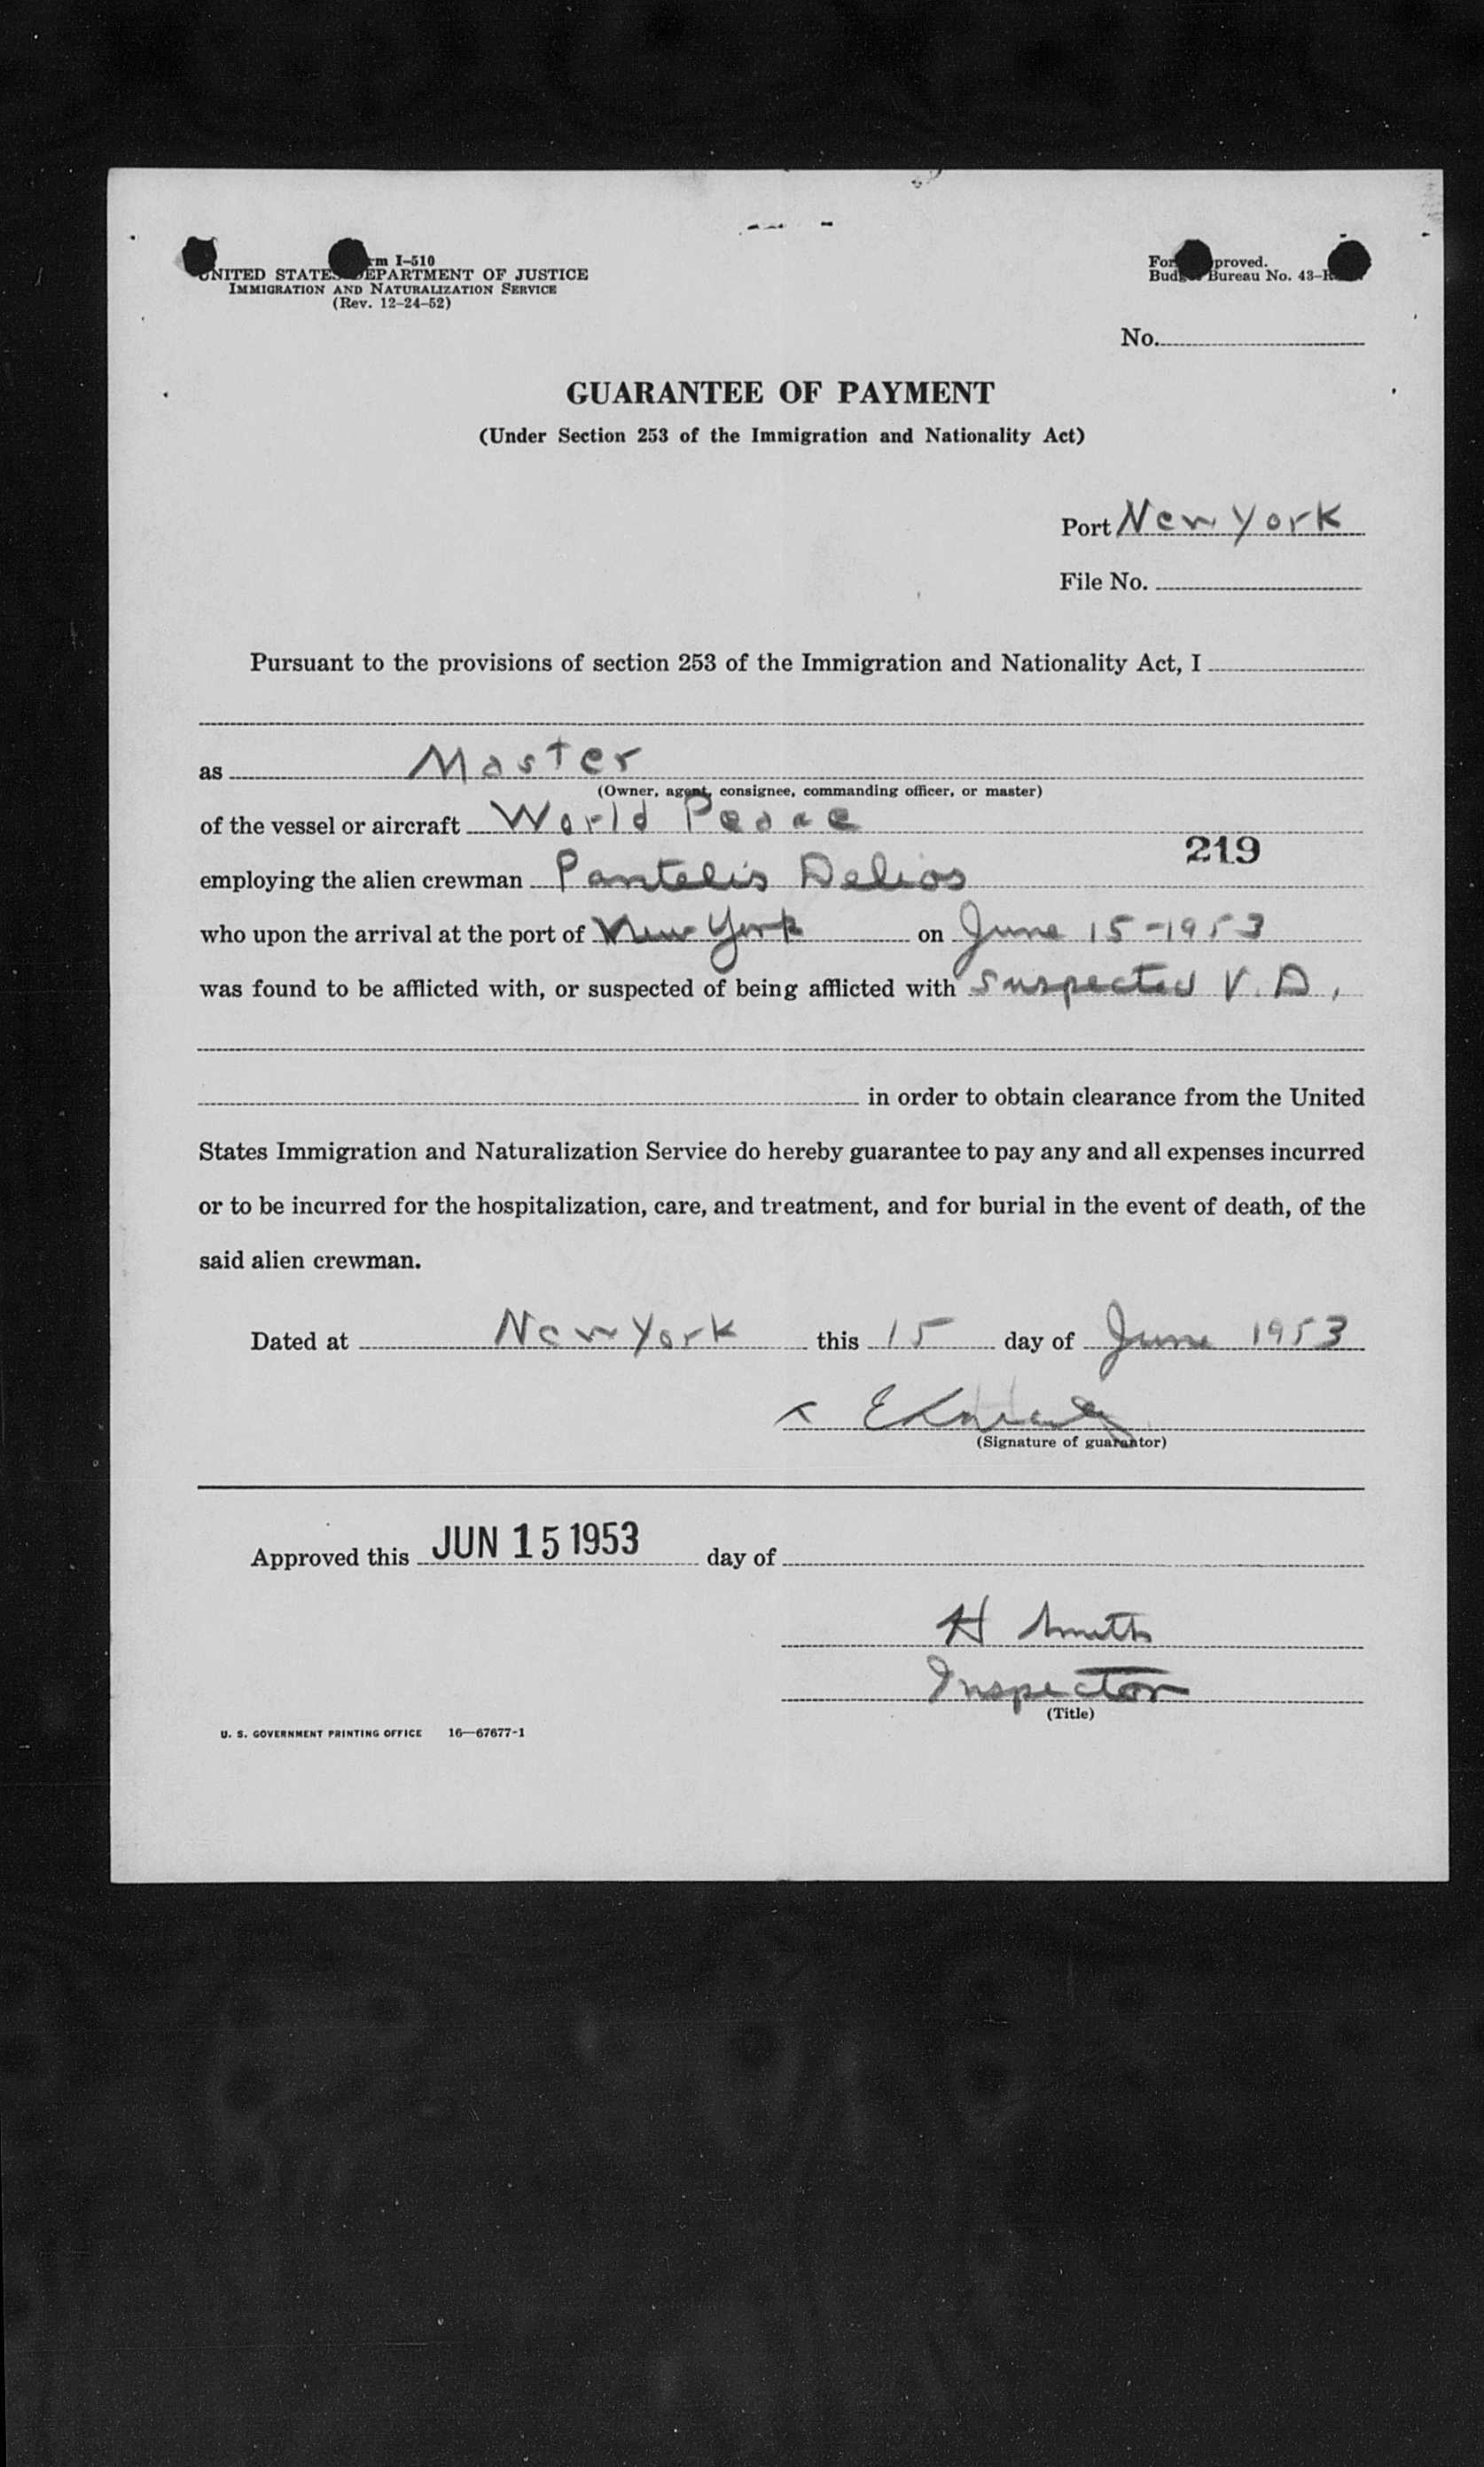 Form I-510
UNITED STATES DEPARTMENT OF JUSTICE
IMMIGRATION AND NATURALIZATION SERVICE
(Rev. 12-24-52)
Form approved.
Budget Bureau No. 43-R
No.
GUARANTEE OF PAYMENT
(Under Section 253 of the Immigration and Nationality Act)
Port New York
File No.
Pursuant to the provisions of section 253 of the Immigration and Nationality Act, I
as Master
(Owner, agent, consignee, commanding officer, or master)
of the vessel or aircraft World Peace
219
employing the alien crewman Pantelis Delios
who upon the arrival at the port of New York on June 15-1953
was found to be afflicted with, or suspected of being afflicted with suspected V.D.
in order to obtain clearance from the United
States Immigration and Naturalization Service do hereby guarantee to pay any and all expenses incurred
or to be incurred for the hospitalization, care, and treatment, and for burial in the event of death, of the
said alien crewman.
Dated at New York this 15 day of June 1953
(Signature of guarantor)
Approved this JUN 15 1953 day of
H Smith
Inspector
(Title)
U. S. GOVERNMENT PRINTING OFFICE 16—67677-1